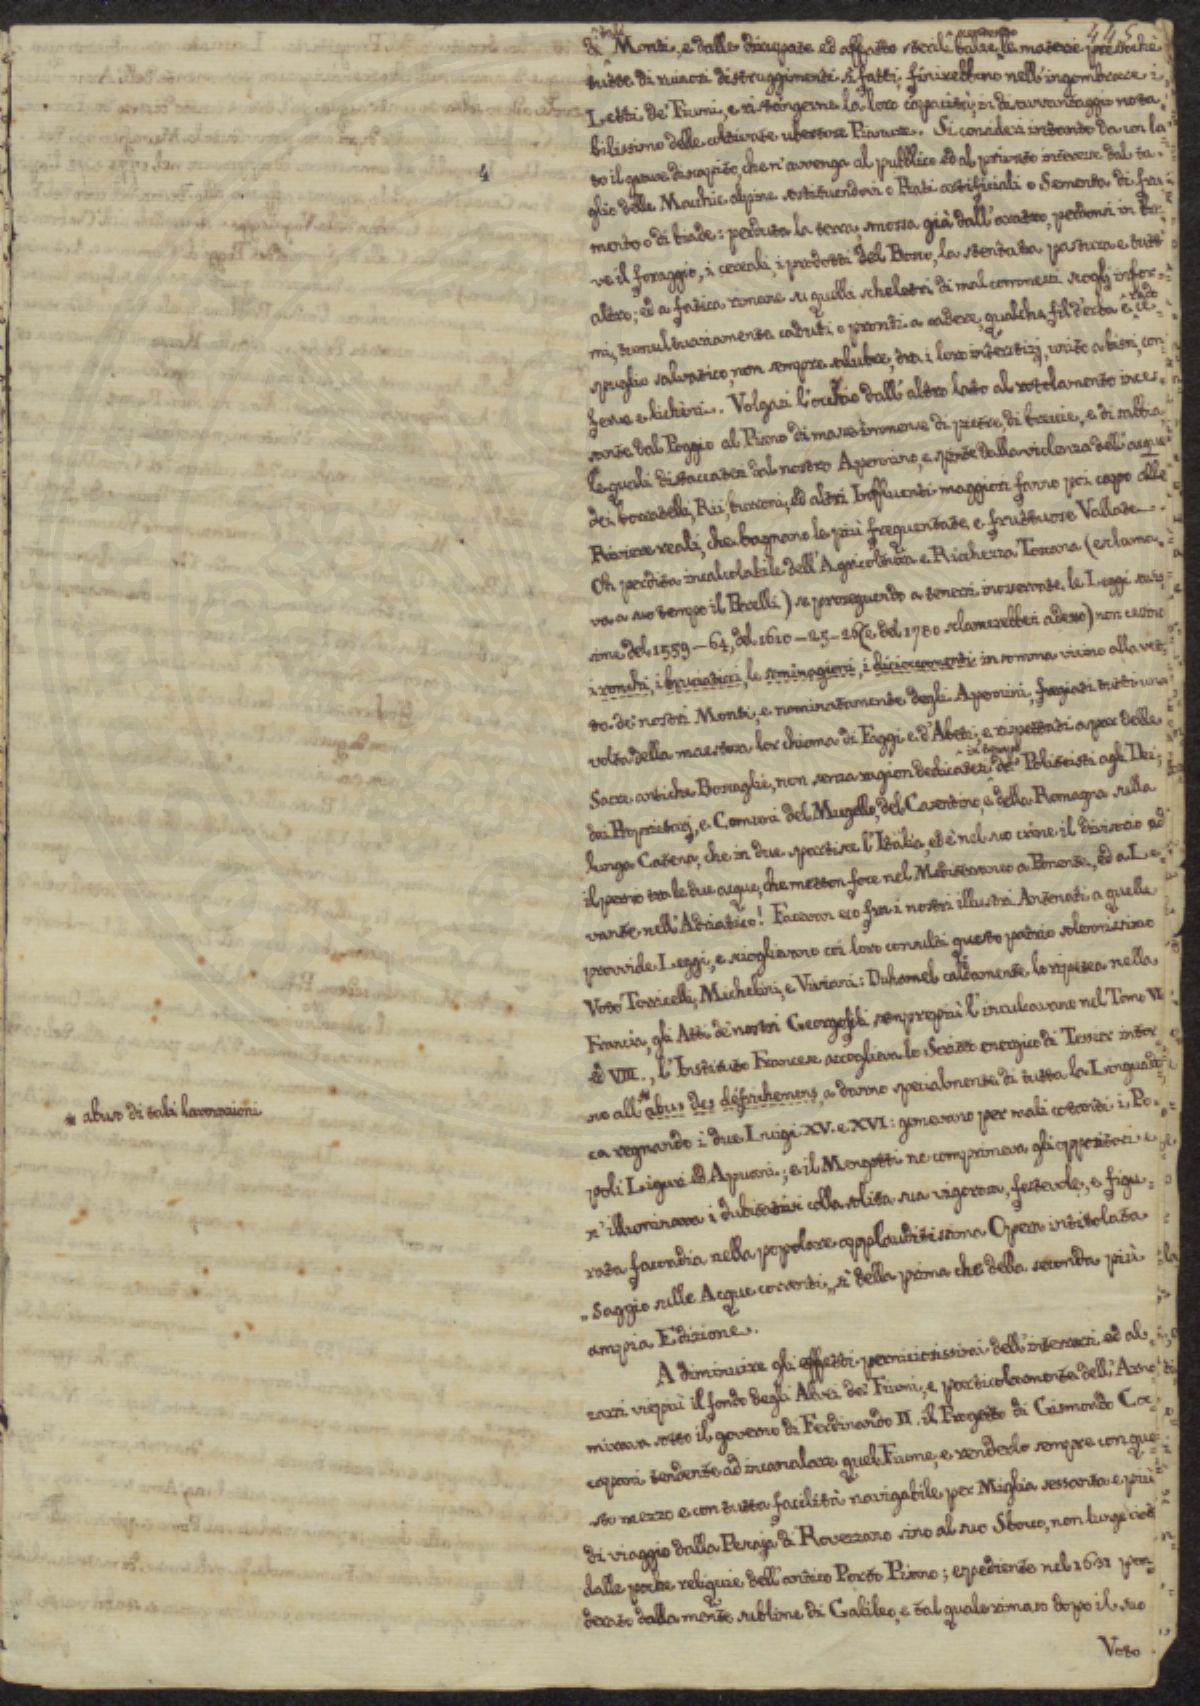 445
tali
di Monti, e dalle dirupate ed affatto sterili balze le materie pressochè
tutte di nuovi distruggimenti sì fatti, finirebbono nell'ingombrare i
Letti de' Fiumi, e ristringerne la loro capacità, in disavvantaggio nota-
bilissimo delle coltivate ubertose Pianure. Si consideri intanto da un la-
to il grave discapito, che n'avvenga al pubblico ed al privato interesse dal ta-
glio delle Macchie alpine sostituendovi o Prati artificiali o Sementa di fru-
mento o di biade: perduta la terra smossa già dall'aratro, perdonsi in bre-
ve il foraggio, i cereali, i prodotti del Bosco, la stentata pastura e tutt'
altro; ed a fatica rimane su quelli scheletri di mal commessi scogli infor-
mi, tumultuariamente caduti o pronti a cadere, qualche fil d'erba e rado ce-
spuglio salvatico, non sempre salubre, tra i loro interstizj, unito a bissi, con-
ferve e licheni. Volgasi l'occhio dall'altro lato al rotolamento inces-
sante dal Poggio al Piano di masse immense di pietre, di breccie, e di sabbia,
le quali distaccatesi dal nostro Apennino, e spinte dalla violenza dell'acque
dei torratelli, Rii, burroni, ed altri Influenti maggiori fanno poi capo alle
Riviere reali, che bagnano le più frequentate e fruttuose Vallate.
Oh perdita incalcolabile dell'Agricoltura e Ricchezza Toscana (esclama-
va a suo tempo il Perelli) se proseguendo a tenersi inosservate le Leggi savis-
sime del 1559 – 64, del 1610 – 25 – 26 (e del 1780 sclamerebbesi adesso) non cessino
i ronchi, i bruciaticci, le seminagioni, i dicioccamenti in somma vicino alla vet-
ta de' nostri Monti, e nominatamente degli Apennini, fregiati tutti una
volta della maestosa lor chioma di Faggi e d'Abeti, e rispettati a par delle
in tempo
Sacre antiche Boscaglie, non senza ragion dedicatesi de' Politeisti agli Dei;
dai Proprietarj, e Comuni del Mugello, del Casentino, e della Romagna sulla
lunga Catena, che in due spartisce l'Italia, ed è nel suo crine il divisorio ed
il perno tra le due acque, che metton foce nel Mediterraneo a Ponente, ed a Le-
vante nell'Adriatico! Facevan eco fra i nostri illustri Antenati a quelle
provvide Leggi, e scioglievano coi loro consulti questo patrio solennissimo
Voto Torricelli, Michelini, e Viviani: Duhamel caldamente lo ripetea nella
Francia, gli Atti de' nostri Georgofili sempreppiù l'inculcavano nel Tomo VI.
ed VIII., l'Instituto Francese accoglieva lo Scritto energico di Tessier intor-
no all'* abus des défrichemens, a danno specialmente di tutta la Linguado-
* abuso di tali lavorazioni
ca regnando i due Luigi XV. e XVI: gemevano per mali cotanti i Po-
poli Liguri ed Apuani; e il Mengotti ne comprimeva gli oppositori e
n'illuminava i dubitativi colla solita sua vigorosa, festevole, e figu-
rata facondia nella popolare applauditissima Opera intitolata
„ Saggio sulle Acque correnti „ sì della prima che della seconda più
ampia Edizione.
A diminuire gli effetti perniciosissimi dell'interrarsi ed al-
zarsi vieppiù il fondo degli Alvei de' Fiumi, e particolarmente dell'Arno
mirava sotto il governo di Ferdinando II. il Progetto di Gismondo Coc-
capani tendente ad incanalare quel Fiume, e renderlo sempre con que-
sto mezzo e con tutta facilità navigabile per Miglia sessanta e più
di viaggio dalla Pescaja di Rovezzano sino al suo Sbocco, non lunge cioè
dalle poche reliquie dell'antico Porto Pisano; espediente nel 1631 pon-
derato dalla mente sublime di Galileo, e tal quale rimaso dopo il suo
Voto